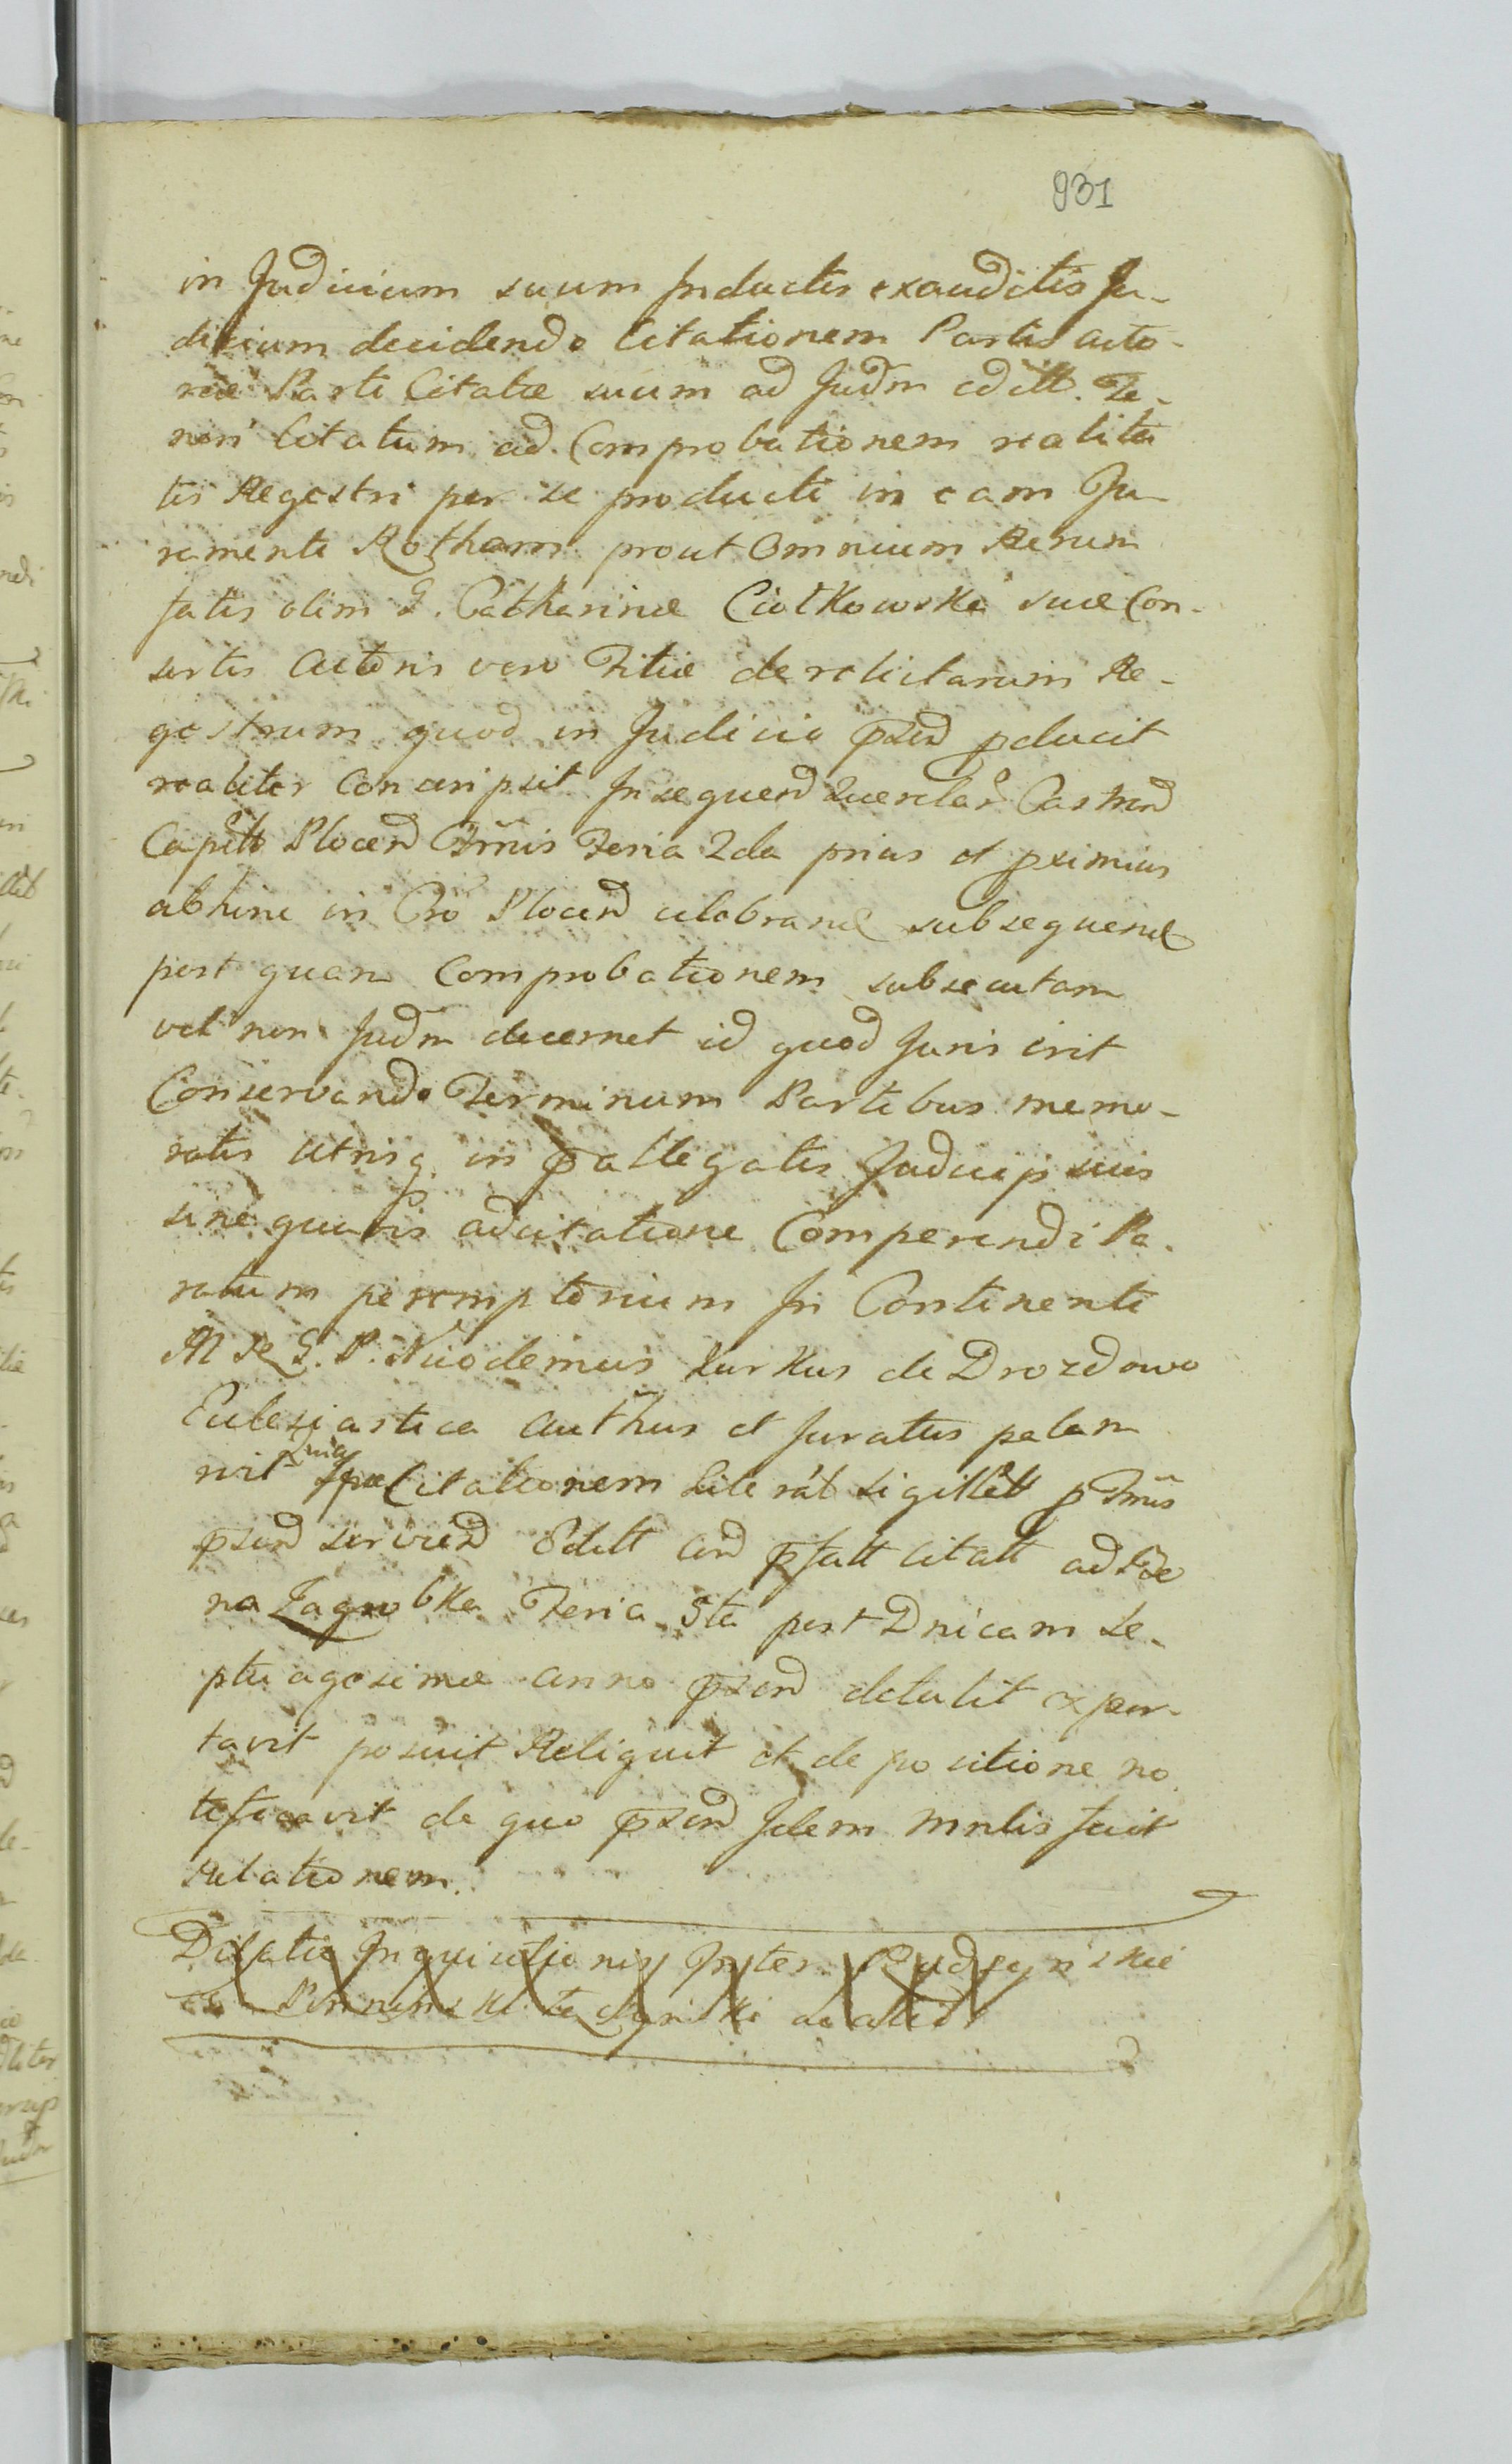 931
in Judicium suum Inductis exauditis Ju-
dicium decidendo Citationem Partis acto-
reæ Parti Citatæ suum ad Judm editt. Te-
neri Citatum ad Comprobationem realita
tis Regestri per se producti in eam Ju-
ramenti Rotham prout Omnium Rerum
fatis olim G. Catharinæ Ciołkowska suæ Con-
sortis Actoris vero Filiæ derelictarum Re-
gestrum quod in Judicio pznd pducit
realiter Conscripsit Insequend Querelar Castrend
Capitt Plocend Tmis Feria 2da prius et pximius
abhinc in Cro Plocend celebrand subsequend
post quam Comprobationem subsecutam
vel non Judm decernet id quod Juris erit
Conservando Terminum Partibus memo-
ratis utrisq in pallegatis Judicijs suis
sine quavis adcitatione Comperendi Pa-
ratum peremptorium In Continenti
M R G. P. Nicodemus Kurkus de Drozdowo
Eclesiastica Authus et Juratus palam
nit Quia Citationem Literál Sigillatt p Tmis
psend serviend Editt cnd pfatt citatt ad Bo
na Zagrobka Feria 5ta post Dnicam Se-
ptuagesimæ anno pzend detulit expor-
tavit posuit Reliquit et de positione no
tificavit de quo pzend Idem Mnlis fecit
Relationem.
Dilatio Inquisitionis Inter Budzynskie